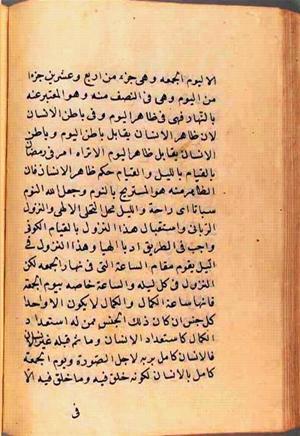 الا ليوم الجمعه وهى جزء من اربع وعشرين جزءا
من اليوم وهى فى النصف منه وهو المعبر عنه
بالنهار فهى فى ظاهر اليوم وفى باطن الانسان
لان ظاهر الانسان يقابل باطن اليوم وباطن
الانسان يقابل ظاهر اليوم الا تراه امر فى رمضان
بالقيام بالليل والقيام حكم ظاهر الانسان فان
الظاهر منه هو المستريح بالنوم وجعل الله النوم
سباتا اى راحة والليل محل التجلى الالهى والنزول
الربانى واستقبال هذا النزول بالقيام الكونى
واجب فى الطريق ادبا الهيا وهذا النزول فى
الليل يقوم مقام الساعة التى فى نهار الجمعه لكن
النزول فى كل ليله والساعة خاصه بيوم الجمعة
فانها ساعة الكمال والكمال لا يكون الا واحدا
كل جنس ان كان ذلك الجنس ممن له استعداد
الكمال كاستعداد الانسان وما ثم قبله غير الانسان
فالانسان كامل بربه لاجل الصورة ويوم الجمعة
كامل بالانسان لكونه خلق فيه وما خلق فيه الا
فى